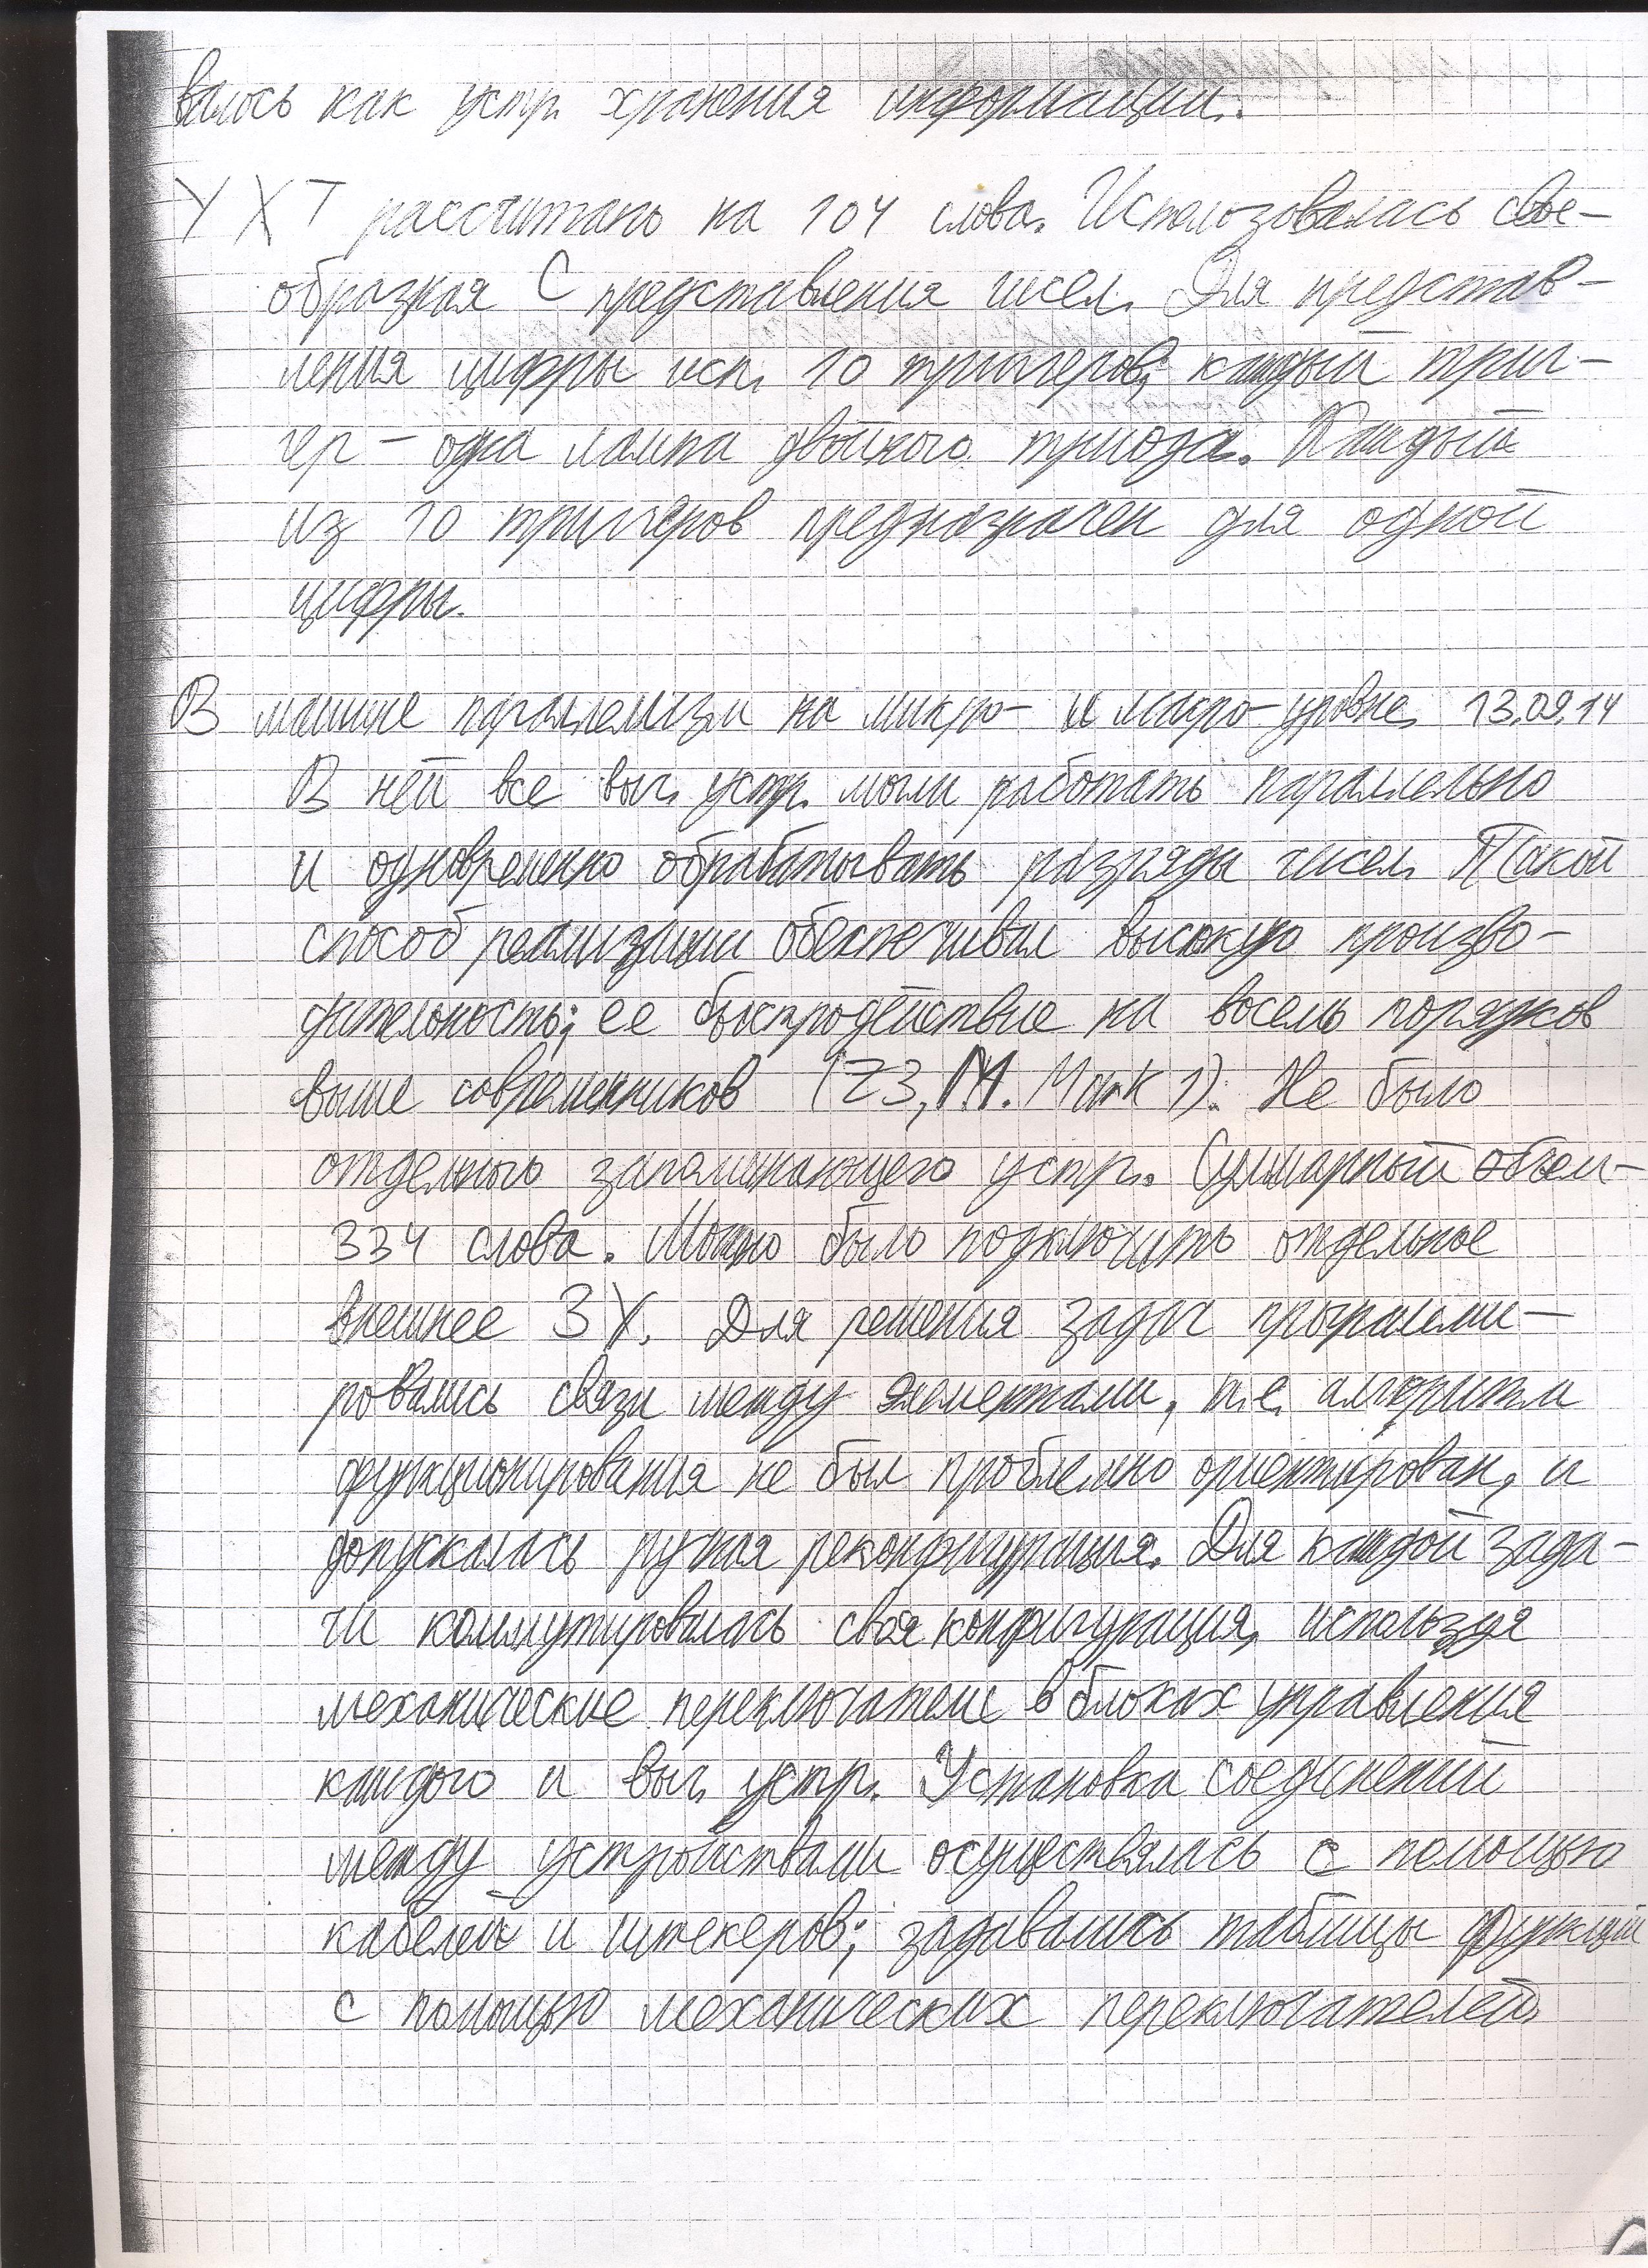 валось как устр. хранения информации.
УХТ рассчитано на 104 слова. Использовалась свое-
образная С представления чисел. Для представ-
ления цифры исп. 10 триггеров; каждый триг-
гер - одна лампа двойного триода. Каждый
из 10 триггеров предназначен для одной
цифры.
В машине параллелизм на микро- и макро-уровне. 13.09.14
В ней все выч. устр. могли работать параллельно
и одновременно обрабатывать разряды чисел. Такой
способ реализации обеспечивал высокую произво-
дительность; ее быстродействие на восемь порядков
выше современников (Z3, М. Mark 1). Не было
отдельного запоминающего устр. Суммарный объем -
334 слова. Можно было подключить отдельное
внешнее ЗУ. Для решения задач программи-
ровались связи между элементами, т.е. алгоритм
функционирования не был проблемно ориентирован, и
допускалась ручная реконфигурация. Для каждой зада-
чи коммутировалась своя конфигурация, используя
механические переключатели в блоках управления
каждого и выч. устр. Установка соединений
между устройствами осуществлялась с помощью
кабелей и штекеров; задавались таблицы функций
с помощью механических переключателей.